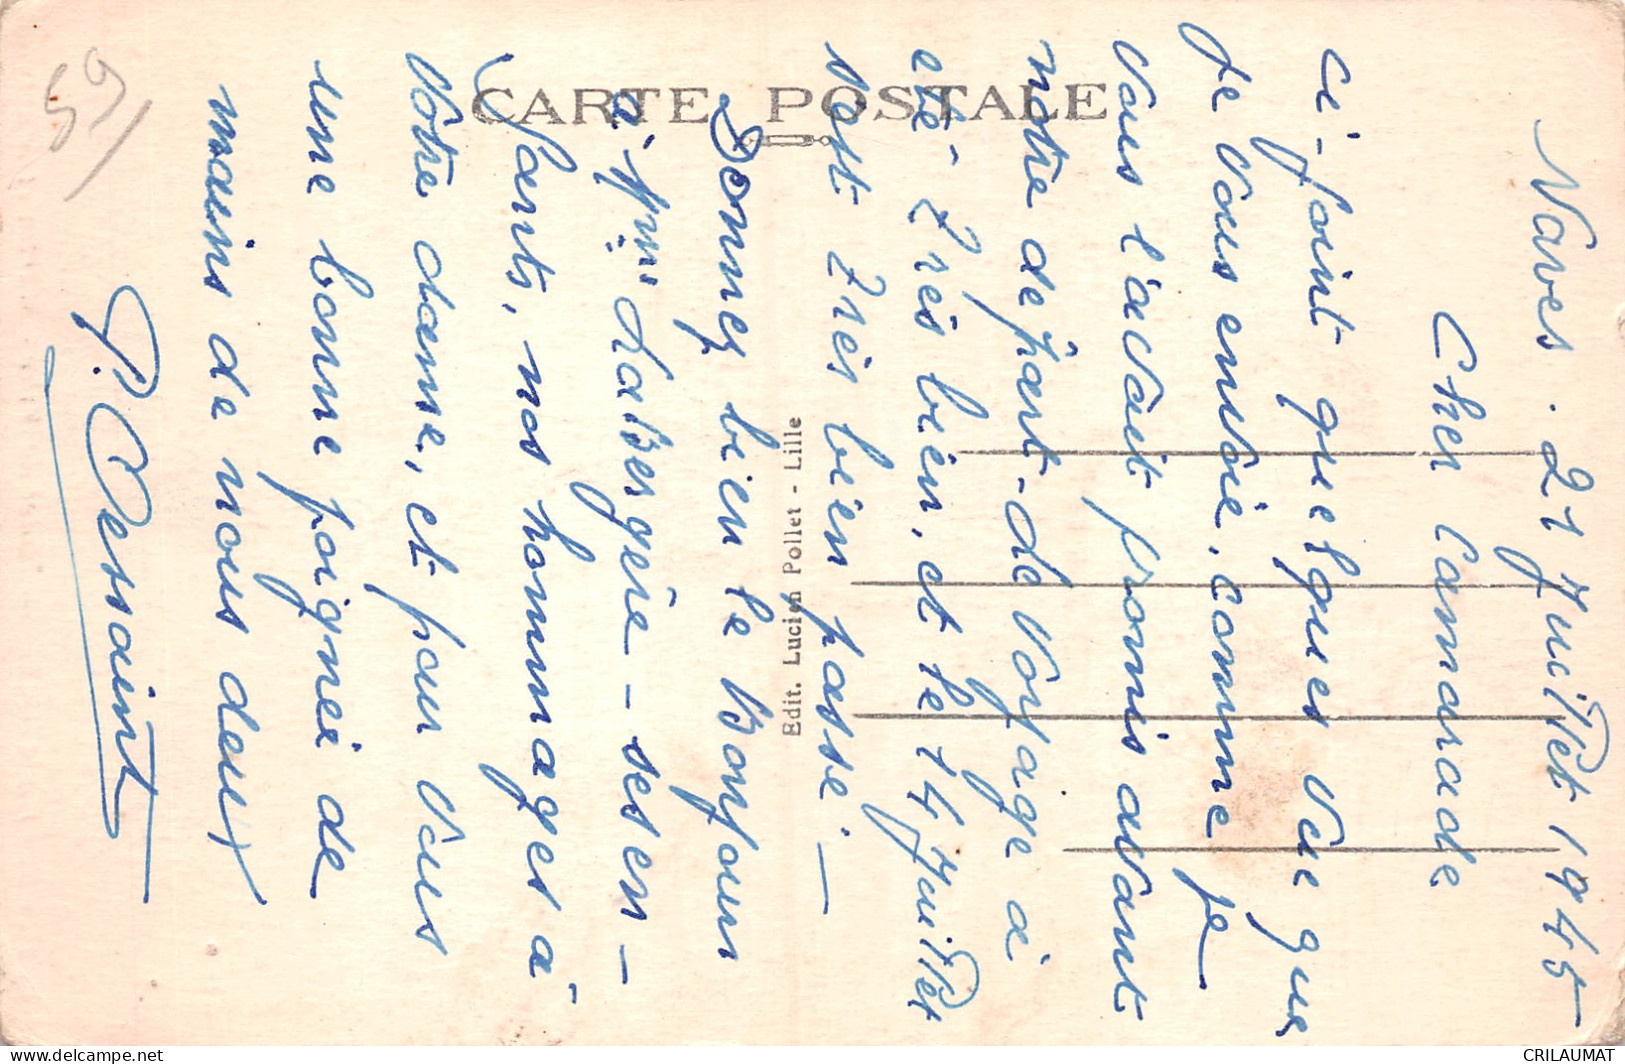 59
CARTE POSTALE
Edit. Lucien Pollet - Lille
Naves. 21 Juillet 1945
Cher Camarade
Ci-joint quelques vue que
Je vous envoie, comme je
vous l'avait promis avant
notre depart - de voyage à
eté - Très bien, et le 14 Juillet
sest Très bien passe. -
Donnez bien le Bonjour
a Mr LaBergerie - ses en -
fants, nos hommages à
Vôtre dame, et pour vous
une bonne poignée de
mains de nous deux
P. Dessaint
delcampe.net
CRILAUMAT